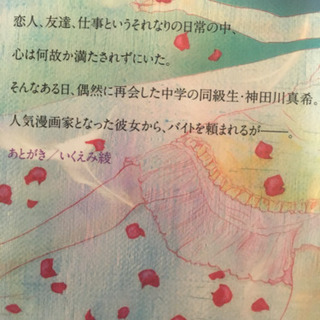 恋人、友達、仕事というそれなりの日常の中、
心は何故か満たされずにいた。
そんなある日、偶然に再会した中学の同級生・神田川真希。
人気漫画家となった彼女から、バイトを頼まれるが――。
あとがき／いくえみ綾